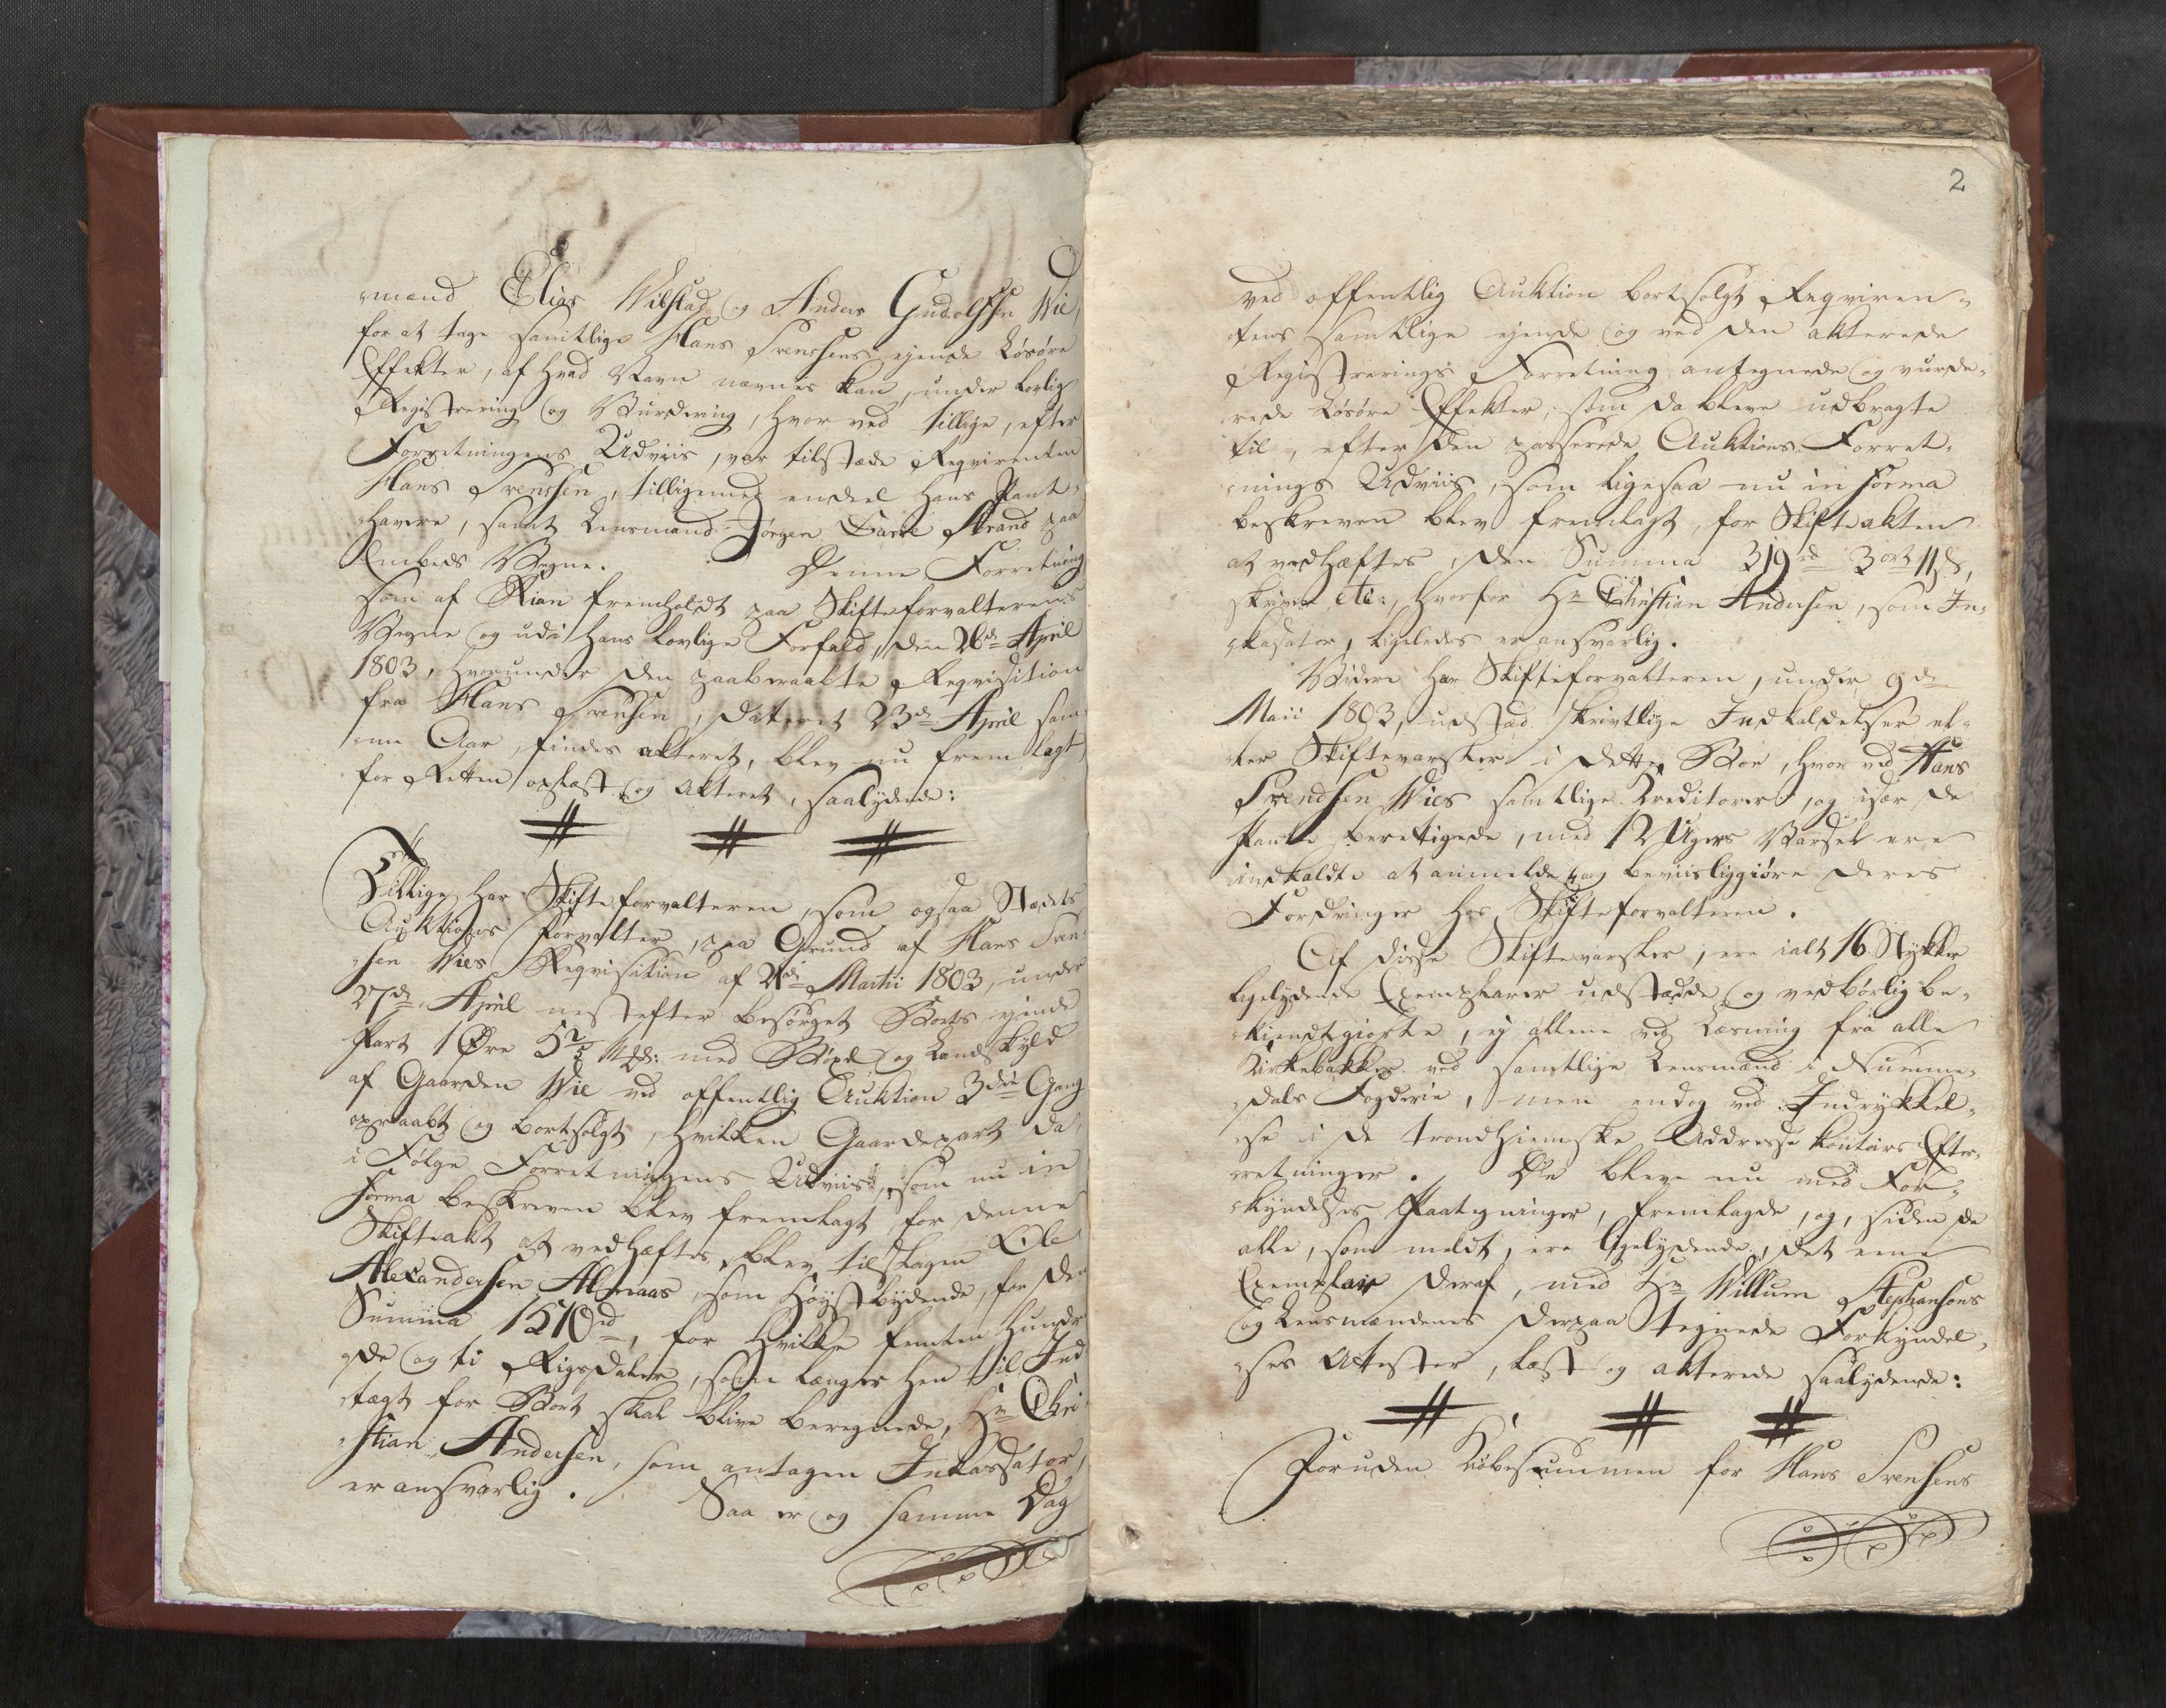 mænd Elias Wibstad og Anders Gudolfsen Wie,
for at tage samtlige Hans Svensens ejende Løsøre
Effekter, af hvad Navn nævnes kan, under lovlig
Registrering og Vurdering, hvor ved tillige, efter
Forretningens Udviis, var tilstæde Reqvirenten
Hans Svensen, tilligemed endeel hans Pant-
havere, samt Lensmand Jørgen Strand paa
Embeds Vegne. Denne Forretning
som af Rian fremholdt paa Skifteforvalterens
Vegne og udi hans lovlige Forfald, den 26de April
1803, hvorunder den paaberaabte Reqvisition
fra Hans Svensen, dateret 23de April sam-
me Aar, findes akteret, blev nu fremlagt
for Retten oplæst og akteret, saalydende:
Tillige har Skifteforvalteren, som ogsaa Stædets
Auktions forvalter, paa Grund af Hans Sven-
sen Wies Reqvisition af Martii 1803, under
27de April nestefter besørget Boets ejende
Part 1 Øre med Bixel og Landskyld
af Gaarden Wie ved offentlig Auktion 3die Gang
opraabt og bortsolgt, hvilken Gaardepart da
i Følge Forretningens Udviis, som nu in
forma beskreven blev fremlagt for denne
Skifteakt at vedhæftes, blev tilslagen Ole
Alexandersen Almaas, som Høystbydende, for den
Summa 1510rd, for hvilke femten Hundre-
de og ti Rigsdaler, som længer hen til Ind-
tægt for Boet skal blive beregnede, Hr Chri-
stian Andersen, som antagen Inkassator,
er ansvarlig. Saa er og samme Dag
2
ved offentlig Auktion bortsolgt Reqviren-
tens samtlige ejende og ved den akterede
Registrerings Forretning antegnede og vurde-
rede Løsøre Effekter, som da bleve udbragte
til, efter den passerede Auktions Forret-
nings Udviis, som ligesaa nu in forma
beskreven blev fremlagt, for Skifteakten
at vedhæftes, den Summa 319rd 3ort 11s,
skriver etc:, hvorfor Hr Christian Andersen, som In-
kasator, ligeledes er ansvarlig.
Videre har Skifteforvalteren, under 9de
Maii 1803, udstæd skrivtlige Indkaldelser el-
ler Skiftevarsler i dette Boe, hvor ved Hans
Svendsen Wies samtlige Kreditorer, og især de
Pante berettigede, med 12 Ugers Varsel ere
indkaldte at anmelde og beviisliggiøre deres
Fordringer hos Skifteforvalteren.
Af disse Skiftevarsler, ere ialt 16 Stykker
ligelydende Exemplarer udstædde og vedbørlig be-
kiendtgiorte, ej allene ved Læsning fra alle
Kirkebakker ved samtlige Lensmænd i Numme-
dals Fogderie, men endog ved Indrykkel-
se i de trondhiemske Addresse kontoirs Efter-
retninger. De bleve nu med For-
kyndelses Paategninger, fremlagde, og, siden de
alle, som meldt, ere ligelydende, det eene
Exemplair deraf, med Hr Willum Stephansons
og Lensmændenes derpaa tegnede Forkyndel-
ses Attester, læst og akterede saalydende:
Foruden Kiøbesummen for Hans Svensens